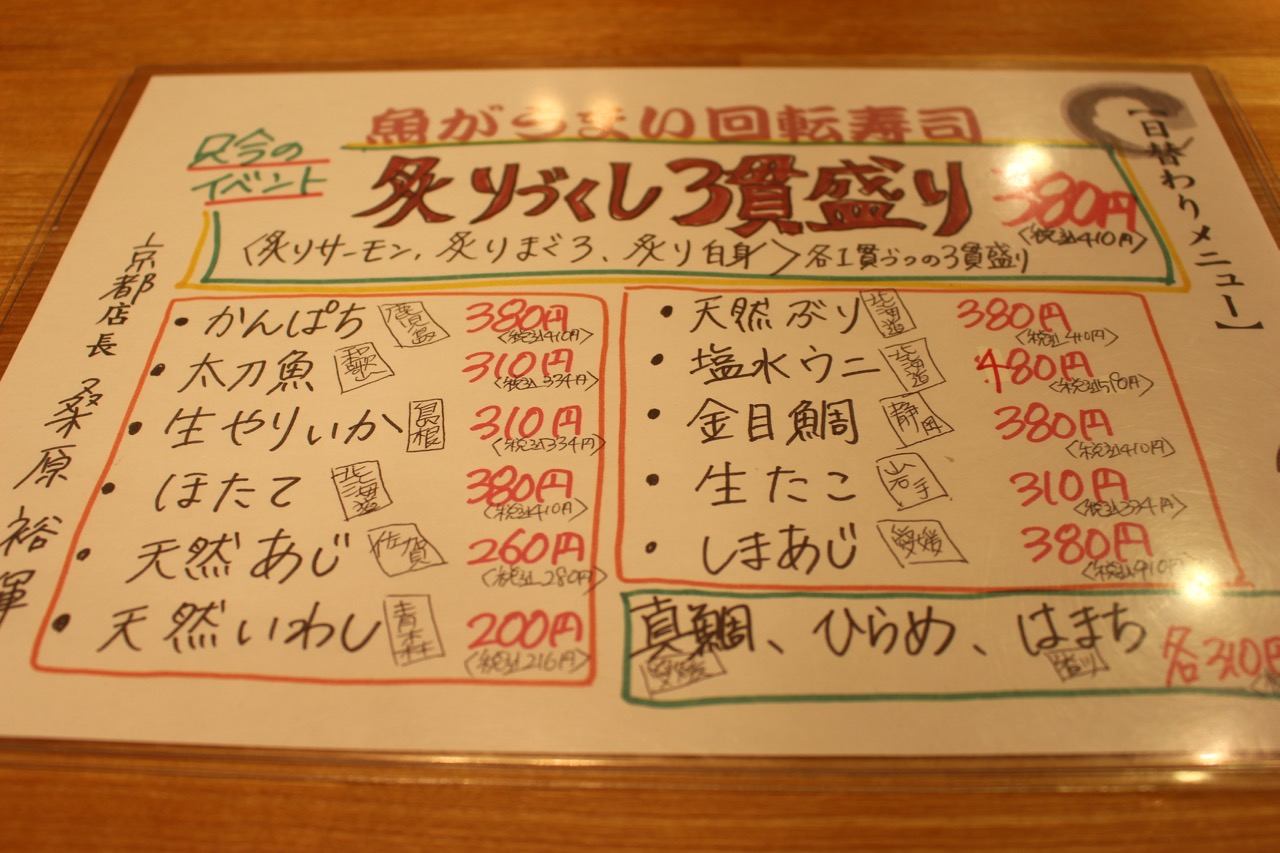 魚がうまい回転寿司
【日替わりメニュー】
只今の
イベント
炙りづくし3貫盛り 380円
〈税込410円〉
〈炙りサーモン、炙りまぐろ、炙り白身〉各1貫づつの3貫盛り
京都店長 桑原裕輝
・かんぱち 鹿児島 380円
〈税込410円〉
・太刀魚 和歌山 310円
〈税込334円〉
・生やりいか 島根 310円
〈税込334円〉
・ほたて 北海道 380円
〈税込410円〉
・天然あじ 佐賀 260円
〈税込280円〉
・天然いわし 青森 200円
〈税込216円〉
・天然ぶり 北海道 380円
〈税込410円〉
・塩水ウニ 北海道 480円
〈税込518円〉
・金目鯛 静岡 380円
〈税込410円〉
・生たこ 岩手 310円
〈税込334円〉
・しまあじ 愛媛 380円
〈税込410円〉
真鯛、ひらめ、はまち 各310円
愛媛